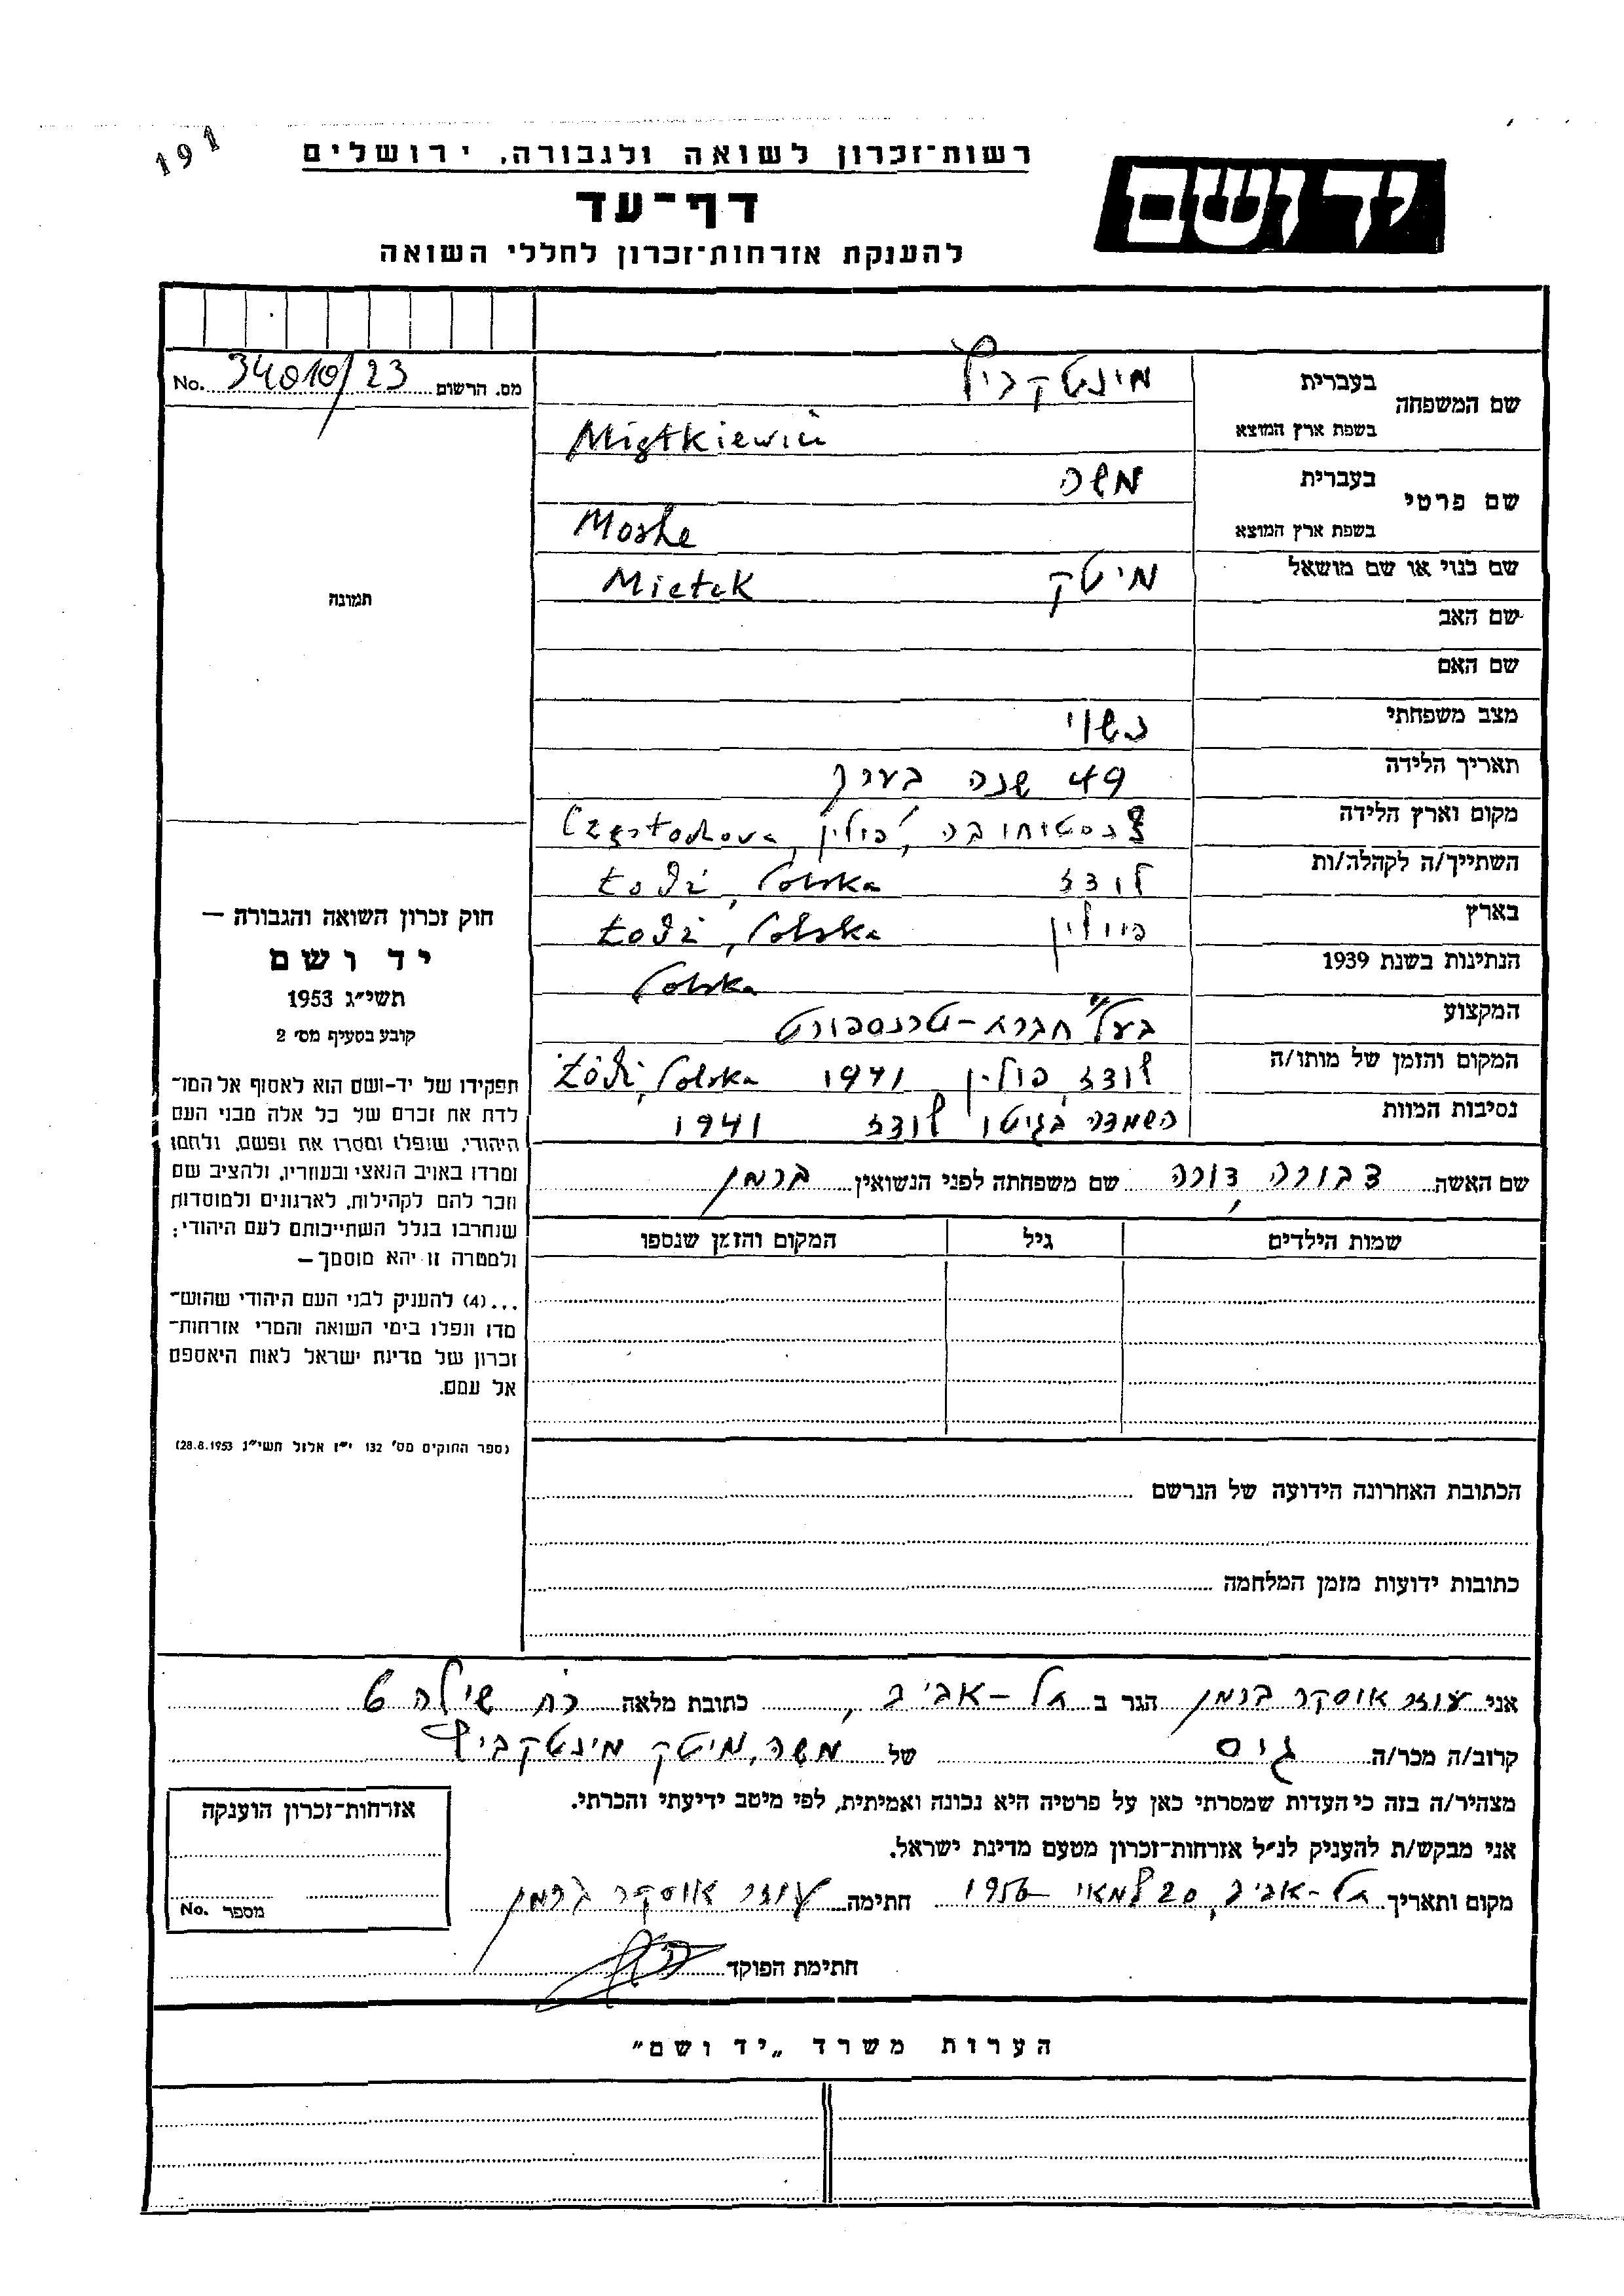 191
רשות־זכרון לשואה ולגבורה, ירושלים
יד ושם
דף־עד
להענקת אזרחות־זכרון לחללי השואה
מס. הרשום 34010/23 No.
שם המשפחה בעברית מינטקביץ
בשפת ארץ המוצא Miętkiewicz
שם פרטי בעברית משה
בשפת ארץ המוצא Moshe
שם כנוי או שם מושאל מיטק Mietek
שם האב
שם האם
מצב משפחתי נשוי
תאריך הלידה 49 שנה בערך
מקום וארץ הלידה צ'נסטוחובה, פולין, Częstochowa
השתייך/ה לקהלה/ות לודז Łódź, Polska
בארץ פולין Łódź, Polska
הנתינות בשנת 1939 Polska
המקצוע בעל חברת-טרנספורט
המקום והזמן של מותו/ה לודז פולין 1941 Łódź, Polska
נסיבות המוות השמדה בגיטו לודז 1941
תמונה
שם האשה דבורה, דורה שם משפחתה לפני הנשואין ברמן
שמות הילדים גיל המקום והזמן שנספו
הכתובת האחרונה הידועה של הנרשם
כתובות ידועות מזמן המלחמה
חוק זכרון השואה והגבורה —
יד ושם
תשי״ג 1953
קובע בסעיף מס׳ 2
תפקידו של יד-ושם הוא לאסוף אל המו־
לדת את זכרם של כל אלה מבני העם
היהודי, שנפלו ומסרו את נפשם, נלחמו
ומרדו באויב הנאצי ובעוזריו, ולהציב שם
וזכר להם לקהילות, לארגונים ולמוסדות
שנחרבו בגלל השתייכותם לעם היהודי;
ולמטרה זו יהא מוסמך —
...(4) להעניק לבני העם היהודי שהוש־
מדו ונפלו בימי השואה והמרי אזרחות־
זכרון של מדינת ישראל לאות היאספם
אל עמם.
(ספר החוקים מס׳ 132 י״ז אלול תשי״ג 28.8.1953)
אני עוזר אוסקר ברמן הגר ב תל-אביב, כתובת מלאה רח שילה 6
קרוב/ה מכר/ה גיס של משה, מיטק מינטקביץ
מצהיר/ה בזה כי העדות שמסרתי כאן על פרטיה היא נכונה ואמיתית, לפי מיטב ידיעתי והכרתי.
אני מבקש/ת להעניק לנ״ל אזרחות־זכרון מטעם מדינת ישראל.
מקום ותאריך תל-אביב, 20 למאי 1956 חתימה עוזר אוסקר ברמן
חתימת הפוקד
אזרחות־זכרון הוענקה
מספר No.
הערות משרד „יד ושם״